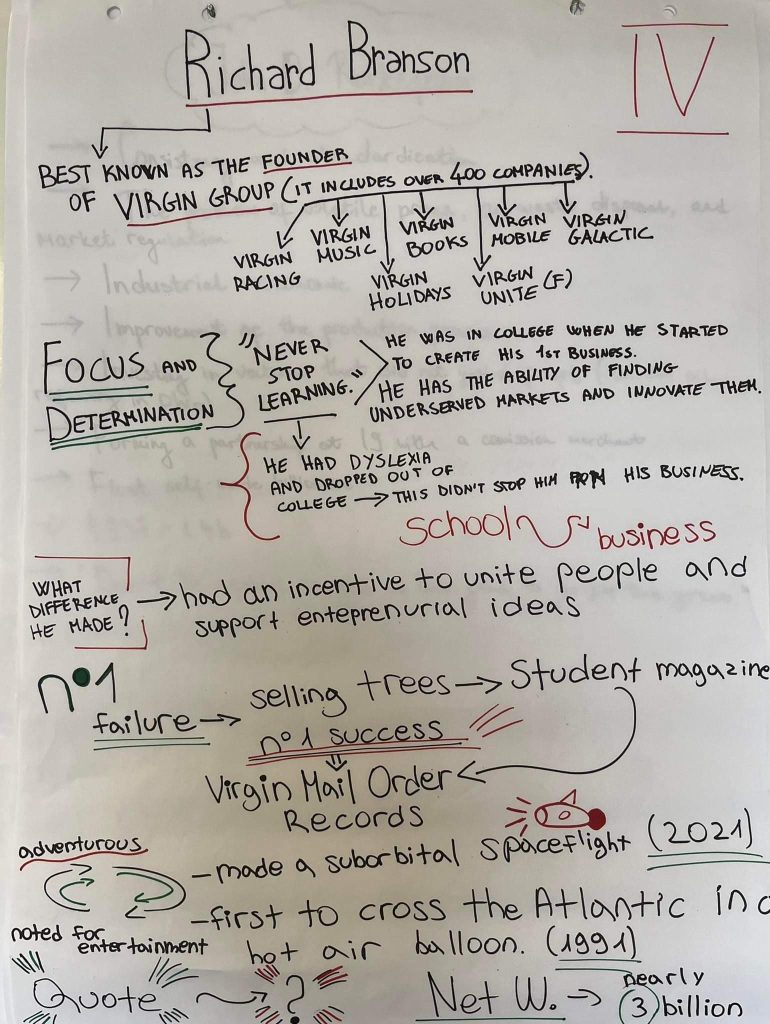 Richard Branson
IV
BEST KNOWN AS THE FOUNDER
OF VIRGIN GROUP (IT INCLUDES OVER 400 COMPANIES).
VIRGIN RACING
VIRGIN MUSIC
VIRGIN HOLIDAYS
VIRGIN BOOKS
VIRGIN UNITE (F)
VIRGIN MOBILE
VIRGIN GALACTIC
FOCUS AND
DETERMINATION
"NEVER
STOP
LEARNING."
HE WAS IN COLLEGE WHEN HE STARTED
TO CREATE HIS 1ST BUSINESS.
HE HAS THE ABILITY OF FINDING
UNDERSERVED MARKETS AND INNOVATE THEM.
HE HAD DYSLEXIA
AND DROPPED OUT OF
COLLEGE → THIS DIDN'T STOP HIM HIS BUSINESS.
SCHOOL business
WHAT
DIFFERENCE
HE MADE?
→ had an incentive to unite people and
support enteprenurial ideas
nº1
failure → selling trees → Student magazine
nº1 success
Virgin Mail Order
Records
adventurous
- made a suborbital spaceflight (2021)
- first to cross the Atlantic in a
hot air balloon. (1991)
noted for
entertainment
Quote → ?
Net W. → nearly
3 billion